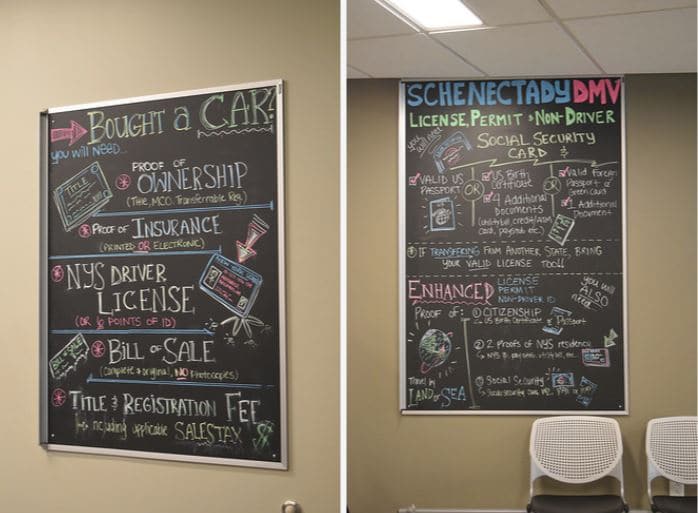 BOUGHT a CAR?
you will NEED...
TITLE
PROOF OF
OWNERSHIP
(Title, MCO, Transferrable Reg.)
PROOF OF INSURANCE
(PRINTED OR ELECTRONIC)
NYS DRIVER
LICENSE
(OR 6 POINTS OF ID)
BILL OF SALE
BILL OF SALE
(complete & original, NO Photocopies)
TITLE & REGISTRATION FEE
including applicable SALESTAX $
SCHENECTADY DMV
LICENSE, PERMIT & NON-DRIVER
you will need
SOCIAL SECURITY
CARD &
VALID US
PASSPORT
OR
US Birth
Certificate
&
4 Additional
Documents
(utility bill, credit/ATM
card, paystub etc.)
OR
Valid Foreign
Passport or
Green card
&
1 Additional
Document
IF TRANSFERING FROM ANOTHER STATE, BRING
YOUR VALID LICENSE TOO!!
ENHANCED
LICENSE
PERMIT
NON-DRIVER ID
you will
ALSO
need
PROOF OF:
① CITIZENSHIP
US Birth Certificate or Passport
② 2 Proofs of NYS residency
NYS ID, pay stub, utility bill, etc...
③ Social Security
Social security card,
Travel by
LAND OR SEA